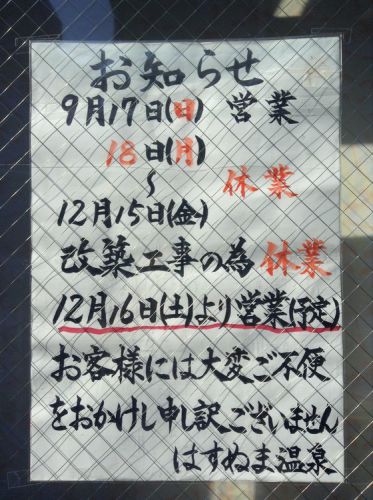 お知らせ
9月17日(日) 営業
18日(月)
〜 休業
12月15日(金)
改築工事の為 休業
12月16日(土)より営業(予定)
お客様には大変ご不便
をおかけし申し訳ございません
はすぬま温泉